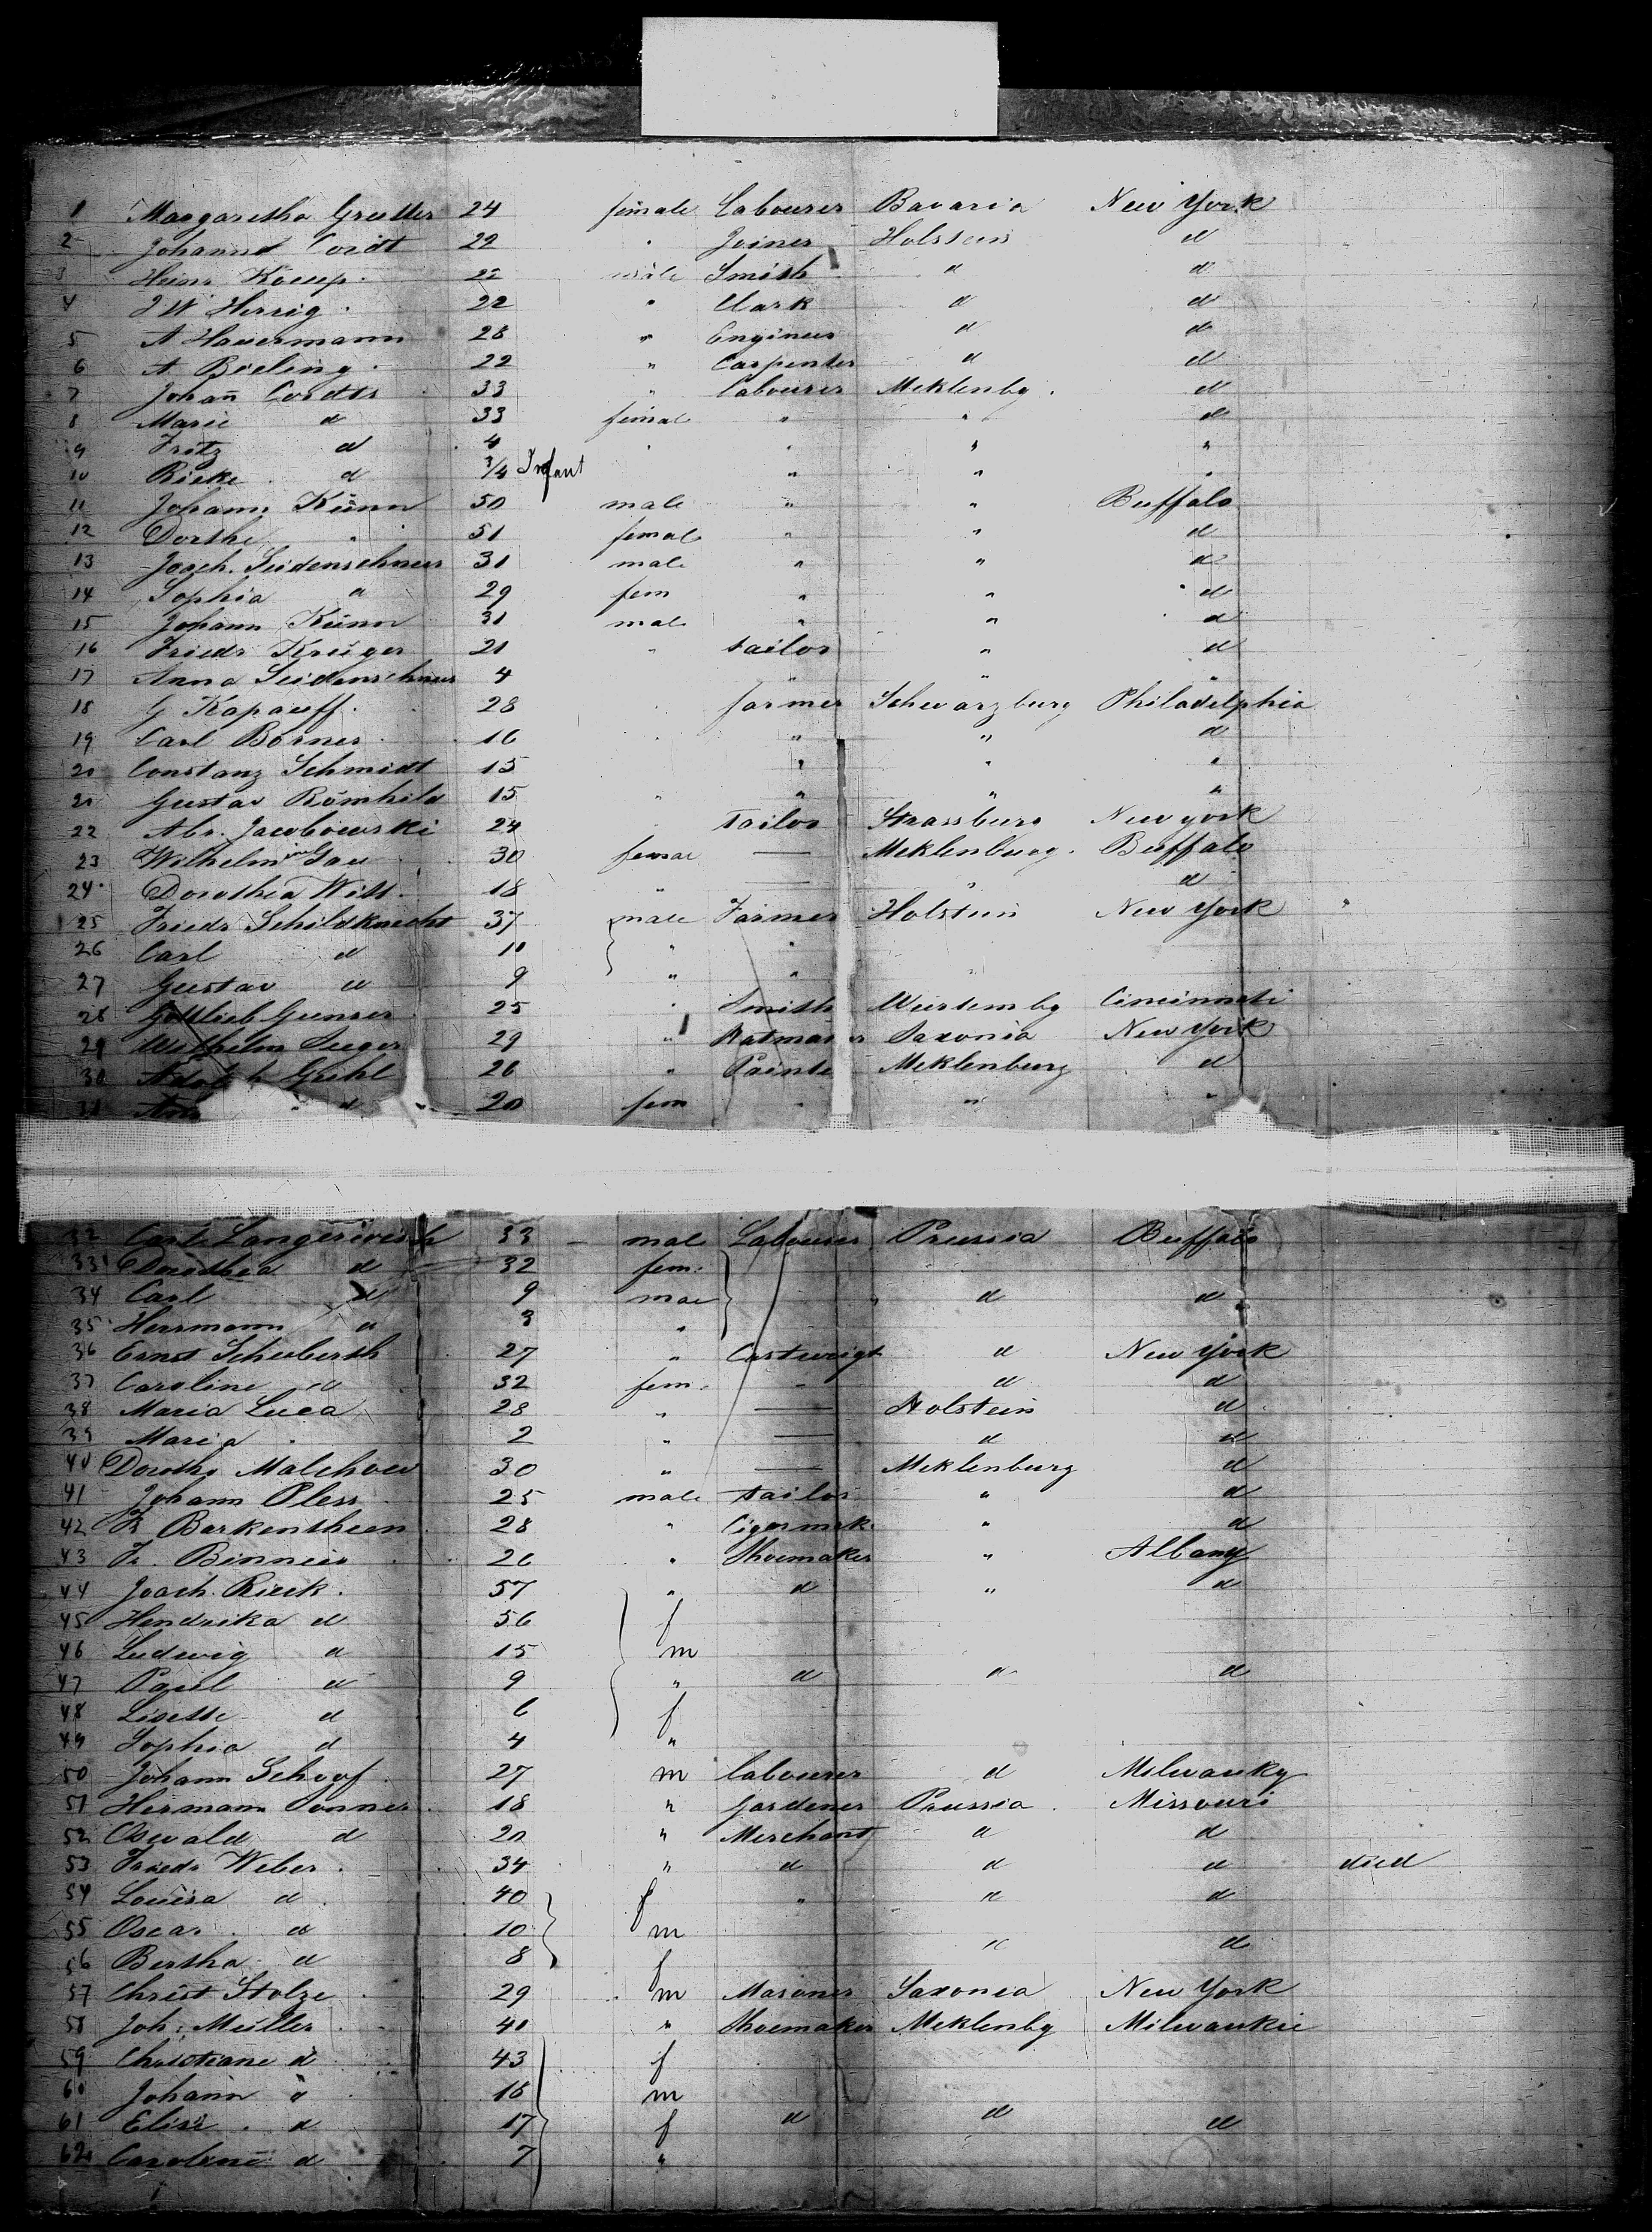 1 Margaretha Gruller 24 female Labourer Bavaria New York
2 Johannd Cordt 22 " Joiner Holstein d
3 Heinr Koeup 22 male Smith d d
4 J W Hersig 22 " Clark d d
5 A Hauermann 28 " Engineer d d
6 A. Bieling 22 " Carpenter d d
7 Johañ Cordts 33 " Labourer Meklenbg. d
8 Marie d 33 female " " d
9 Fritz d 4 " " " "
10 Rieke d 3/4 Infant " " "
11 Johann Künn 50 male " " Buffalo
12 Dorthe " 51 female " " d
13 Joach. Seidenschnur 31 male " " d
14 Sophia d 29 fem " " d
15 Johann Künn 31 male " " d
16 Friedr Krüger 21 " tailor " d
17 Anna Seidenschnur 4 " " "
18 G Kapauff 28 " farmer Schwarzburg Philadelphia
19 Carl Borner 16 " " " d
20 Constanz Schmidt 15 " " "
21 Gustav Römhild 15 " " " "
22 Abr. Jacobowski 24 " Tailor Strassburg New york
23 Wilhelmine Gau 30 femal — Meklenburg. Buffalo
24 Dorothea Witt 18 " — " d
25 Friedr Schildknecht 37 male Farmer Holstein New York
26 Carl d 10 " "
27 Gustav d 9 " " "
28 Gottlieb Gunser 25 " Smith Würtembg Cincinnati
29 Wilhelm Seeger 29 " Saxonia New York
30 Adolph Guhl 26 " Painter Meklenburg d
31 d 20 fem " " "
32 Carl Langerwisch 33 male Labourer Prussia Buffalo
33 Dorothea d 32 fem.
34 Carl d 9 male d d
35 Herrmann d 3 "
36 Ernst Schuberth 27 " Cartwrigt d New York
37 Caroline d 32 fem. " d d
38 Maria Luca 28 " — Holstein d
39 Maria 2 " — d d
40 Doroth. Malchow 30 " — Meklenburg d
41 Johann Pless 25 male tailor " d
42 Barkentheen 28 " Cigarmak. " d
43 Fr. Binnier 26 " Shoemaker " Albany
44 Joach. Rieck. 57 " d " d
45 Hendrika d 56 f
46 Ludwig d 15 m
47 Paul d 9 " d d d
48 Lisette d 6 f
49 Sophia d 4 "
50 Johann Schoof 27 m labourer d Milwauky
51 Hermann Conner 18 " Gardener Prussia Missouri
52 Oswald d 20 " Merchant d d
53 Friedr Weber 34 " d d d died
54 Louisa d 40 f " d d
55 Oscar d 10 m
56 Bertha d 8 f d d
57 Christ Stolze 29 m Masoner Saxonia New York
58 Joh. Müller 41 " Shoemaker Meklenbg Milwaukie
59 Christiane d 43 f
60 Johann d 18 m
61 Elise d 17 f d d d
62 Caroline d 7 "